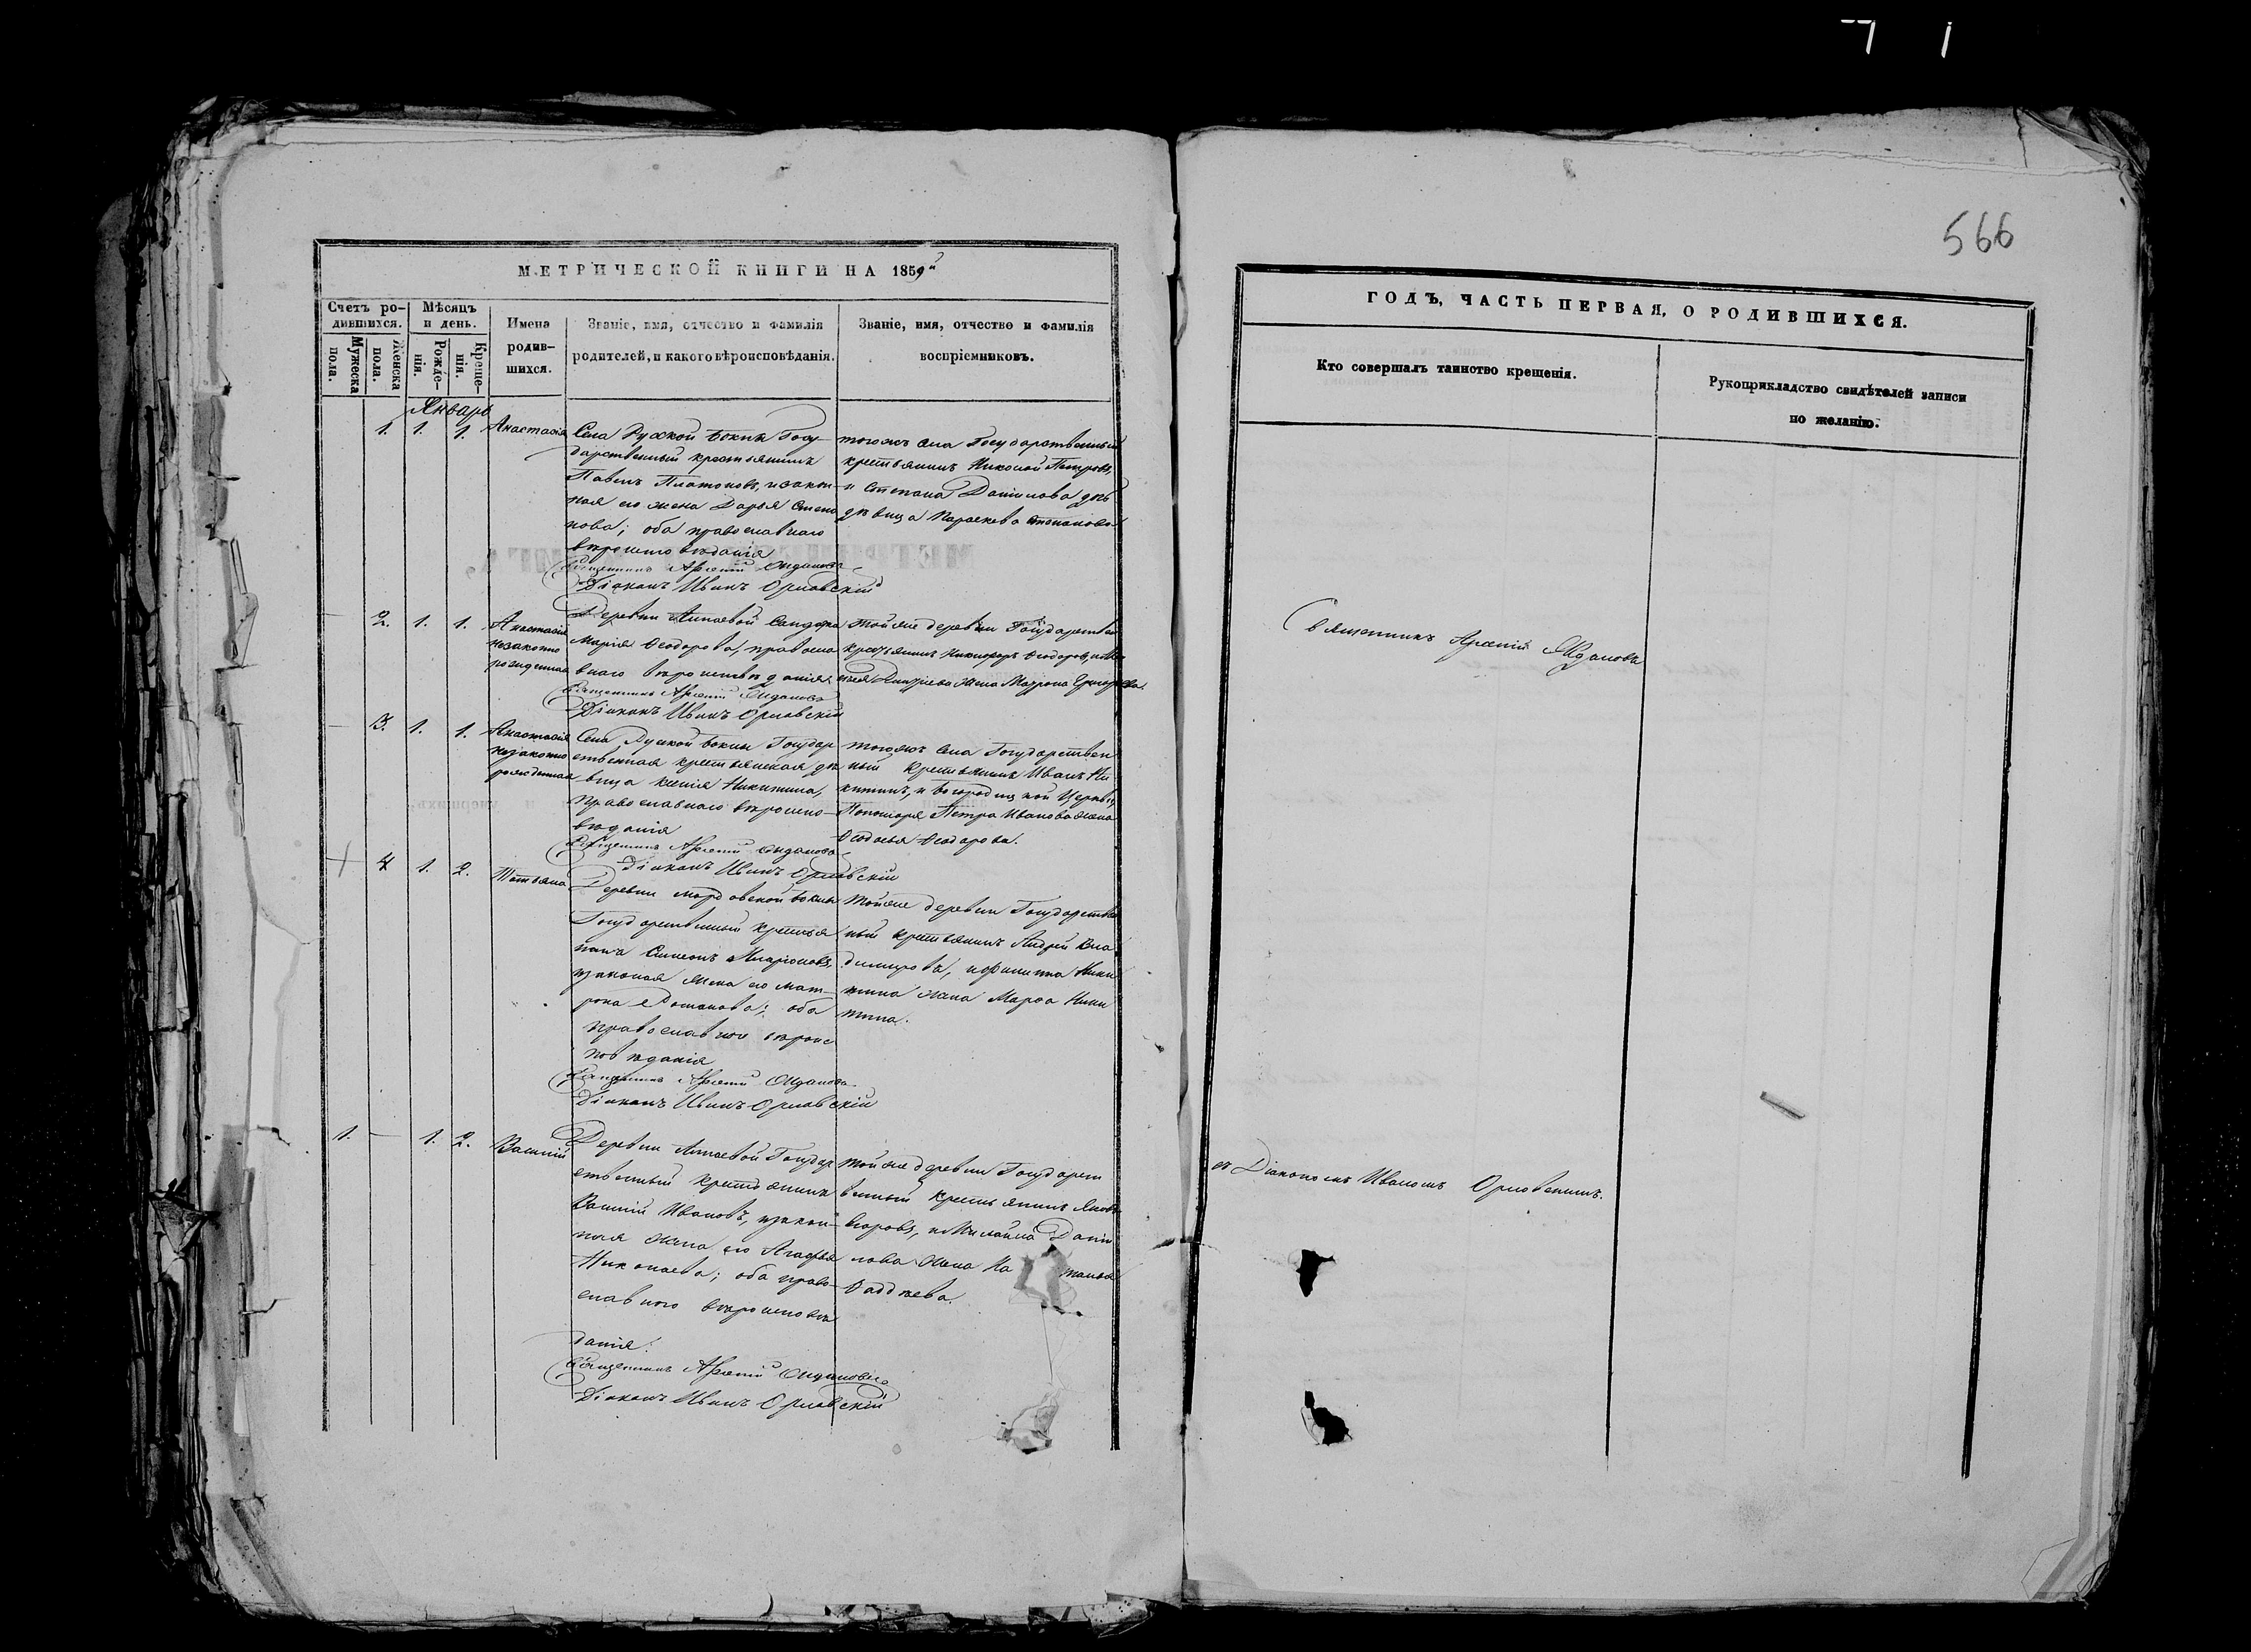 566
МЕТРИЧЕСКОЙ КНИГИ НА 1859
ГОДЪ, ЧАСТЬ ПЕРВАЯ, О РОДИВШИХСЯ.
Счетъ ро-
дившихся.
Мужеска
пола.
Женска
пола.
Мѣсяцъ
и день.
Рожде-
нія.
Креще-
нія.
Имена
родив-
шихся.
Званіе, имя, отчество и фамилія
родителей, и какого вѣроисповѣданія.
Званіе, имя, отчество и фамилія
воспріемниковъ.
Кто совершалъ таинство крещенія.
Рукоприкладство свидѣтелей записи
по желанію.
Январь
1. 1. 1.
Анастасія
Села Руской Госу-
дарственный крестьянинъ
Павелъ Платоновъ, и закон-
ная его жена Дарья Степа
нова; оба православнаго
вѣроисповѣданія
Священникъ Арсеній
Діаконъ Иванъ Орловскій
тогожъ села Государственный
крестьянинъ Николай Петровъ,
и Степана Данилова дочь
дѣвица Параскева Степанова
2. 1. 1.
Анастасія
незаконно
рожденная
Деревни
Марія Ѳеодорова, правосла
внаго вѣроисповѣданія
Священникъ Арсеній
Діаконъ Иванъ Орловскій
тойже деревни Государствен
крестьянинъ Никифоръ Ѳеодоровъ,
жена Матрона Григорьева.
3. 1. 1.
Анастасія
незаконно
рожденная
Села Руской Государ
ственная крестьянская дѣ
вица Ксенія Никитина,
православнаго вѣроиспо-
вѣданія
Священникъ Арсеній
Діаконъ Иванъ Орловскій
тогожъ села Государствен
ный крестьянинъ Иванъ Ни-
китинъ, и Богородицкой Церкви,
Пономаря Петра Иванова жена
Ѳеодосья Ѳеодорова.
4 1. 2.
Татьяна
Деревни Мордовской
Государственный крестья
нинъ Симеонъ Иларіоновъ,
и законная жена его Мат-
рона Романова; оба
православнаго вѣроис
повѣданія
Священникъ Арсеній
Діаконъ Иванъ Орловскій
Тойже деревни Государствен
ный крестьянинъ Андрей Вла
димировъ, и Филиппа Ники
тина жена Марѳа Ники
тина.
1. 1. 2.
Василій
Деревни Государ
ственный крестьянинъ
Василій Ивановъ, и закон-
ная жена его Агафья
Николаева; оба право-
славнаго вѣроисповѣ
данія.
Священникъ Арсеній
Діаконъ Иванъ Орловскій
тойже деревни Государст
венный крестьянинъ Яковъ
Егоровъ, и Михаила Дани
лова жена
Ѳаддѣева.
Священникъ Арсеній
съ Діакономъ Иваномъ Орловскимъ.